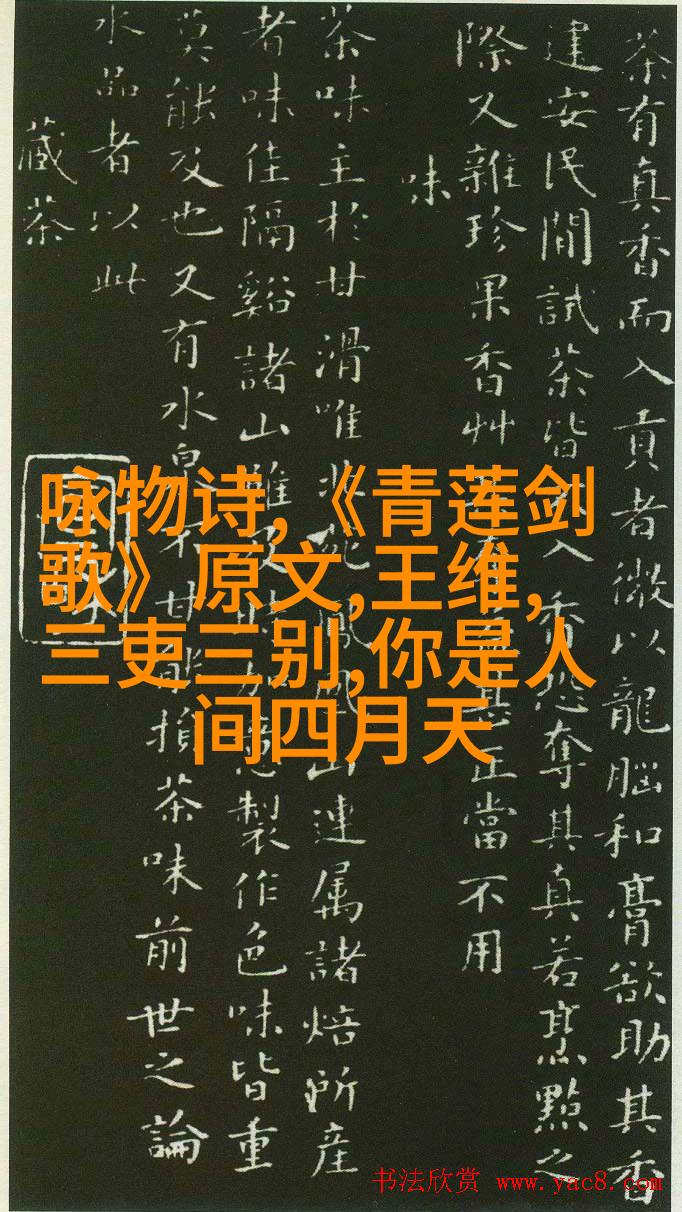 茶有真香而入貢者微以龍腦和膏欲助其香
建安民間試茶皆不入香恐奪其真若烹點之
際又雜珍果香艸正當不用
味
茶味主於甘滑唯北苑鳳山連属諸焙所産
者味佳隔谿諸山雖意製作色味皆重
莫能及也又有水泉不甘能損茶味前世之論
水品者以此
藏茶
咏物诗,《青莲剑
歌》原文,王维,
三吏三别,你是人
间四月天
书法欣赏 www.yac8.com